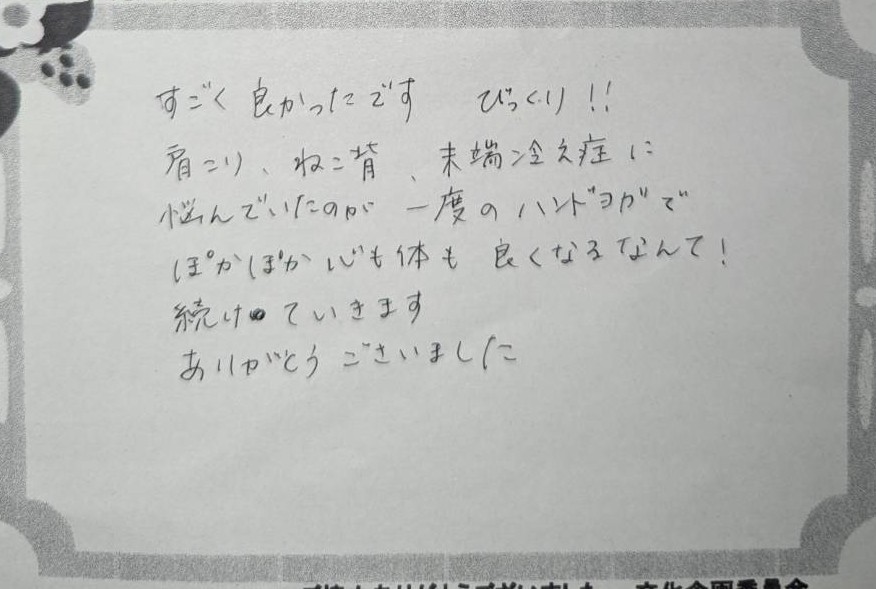 すごく 良かったです　びっくり!!
肩こり、ねこ背、末端冷え症に
悩んでいたのが 一度の ハンドヨガで
ぽかぽか 心も体も 良くなるなんて!
続けていきます
ありがとうございました
文化企画委員会